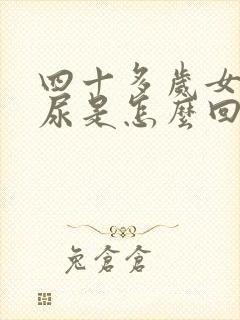 四十多歲女
尿是怎麼回
兔倉倉